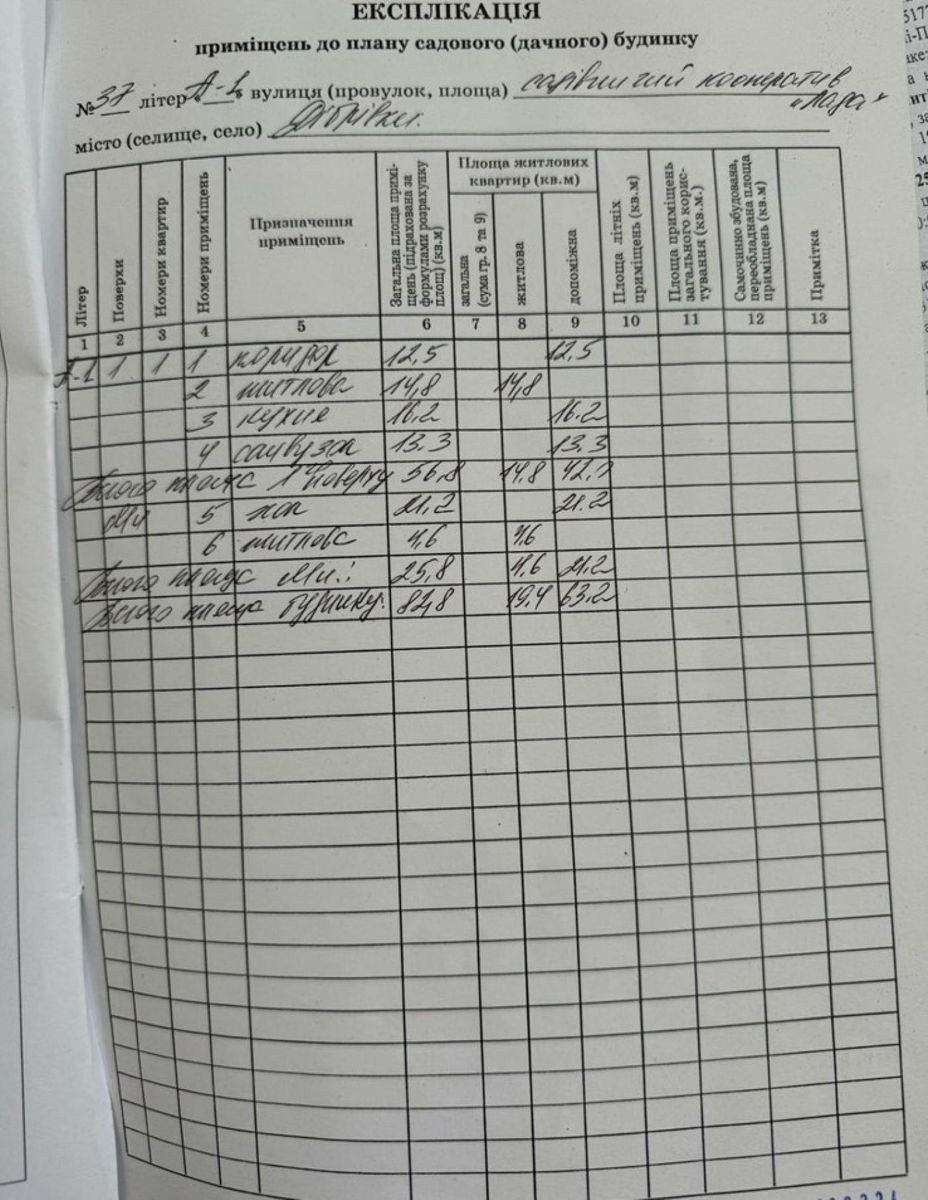 ЕКСПЛІКАЦІЯ
приміщень до плану садового (дачного) будинку
№ 37 літер „А-1" вулиця (провулок, площа) садівничий кооператив
"Лада"
місто (селище, село) Дібрівки.
Літер Поверхи Номери квартир Номери приміщень Призначення приміщень Загальна площа приміщень (підрахована за формулами розрахунку площ) (кв.м) Площа житлових квартир (кв.м) загальна (сума гр. 8 та 9) житлова допоміжна Площа літніх приміщень (кв.м) Площа приміщень загального користування (кв.м.) Самочинно збудована, переобладнана площа приміщень (кв.м) Примітка
1 2 3 4 5 6 7 8 9 10 11 12 13
А-1 1 1 1 коридор 12,5 12,5
2 житлова 14,8 14,8
3 кухня 16.2 16.2
4 санвузол 13.3 13.3
Всього площа 1го поверху 56,8 14,8
Мн 5 хол 21,2 21.2
6 житлова 4,6 4,6
Всього площа Мн.: 25,8 4,6 21.2
Всього площа будинку: 82,8 19,4 63.2